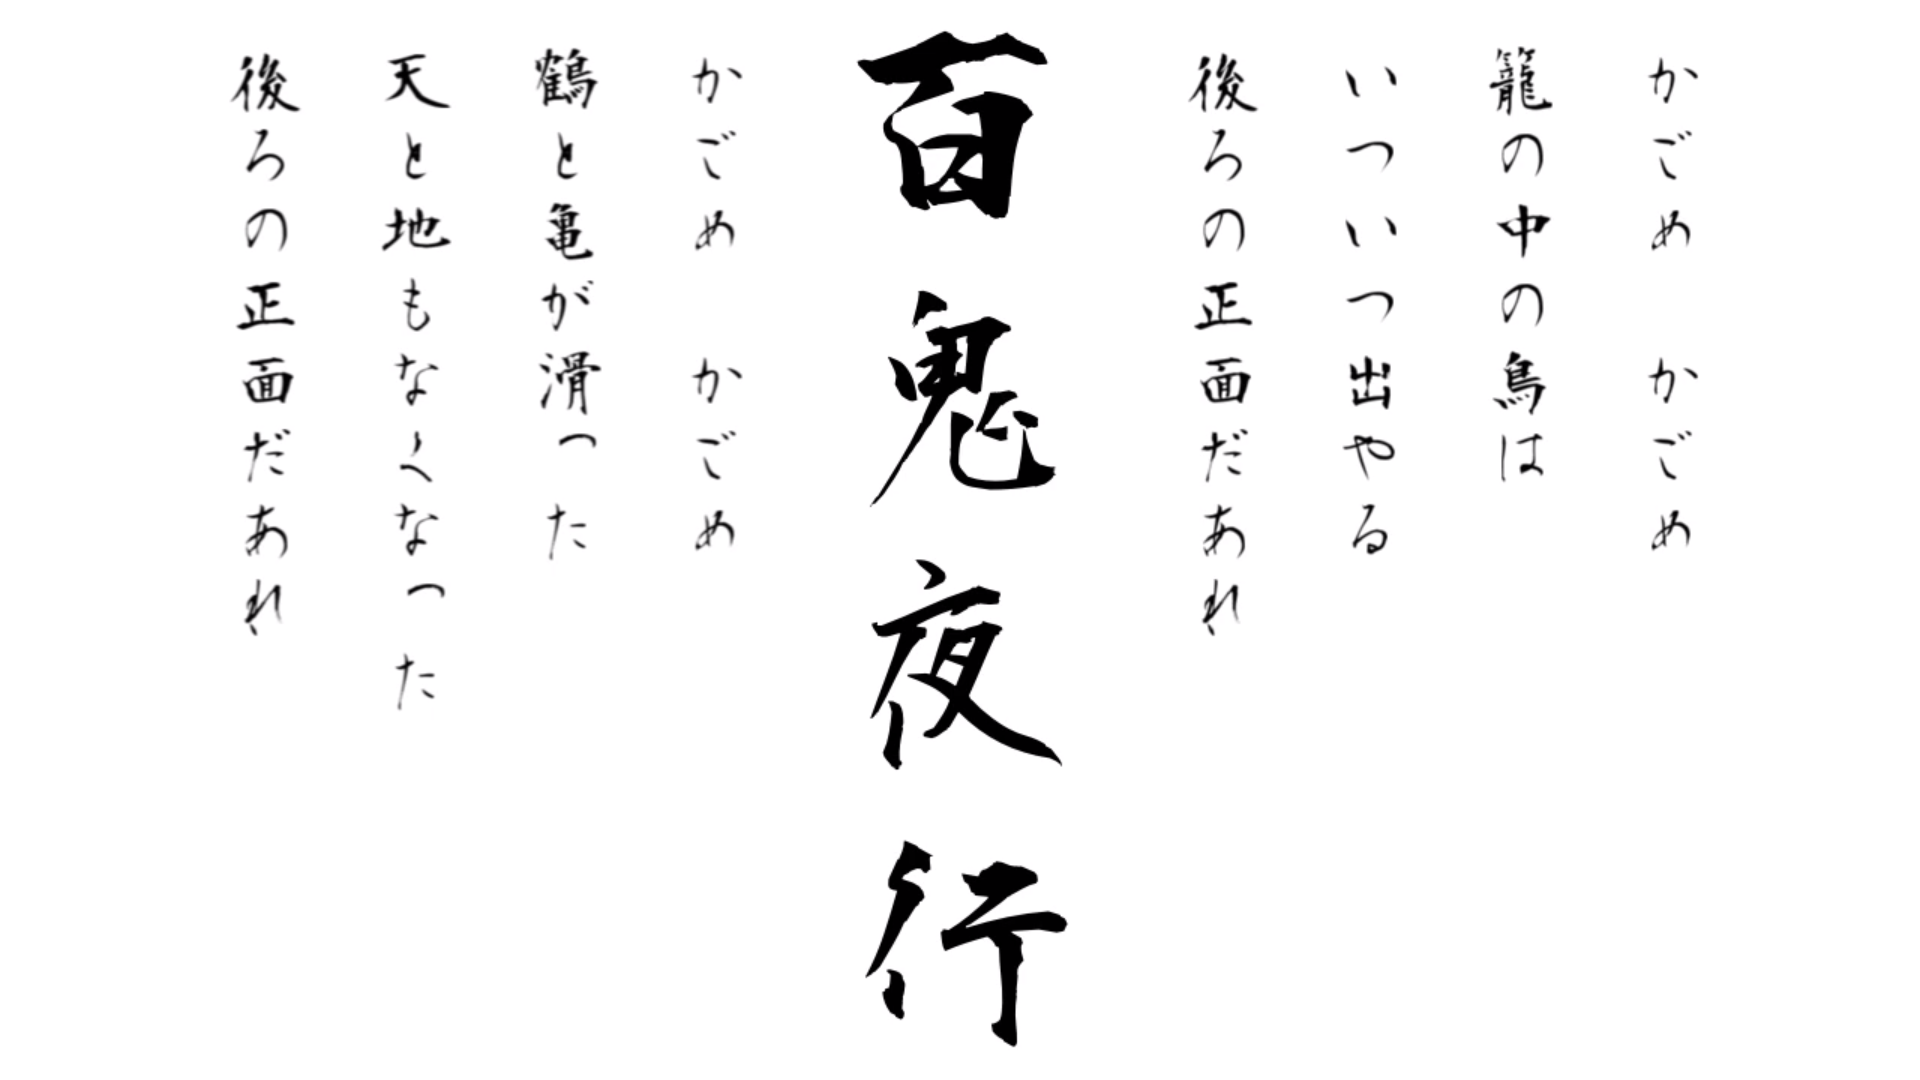 かごめ　かごめ
籠の中の鳥は
いついつ出やる
後ろの正面だあれ
百鬼夜行
かごめ　かごめ
鶴と亀が滑った
天と地もなくなった
後ろの正面だあれ